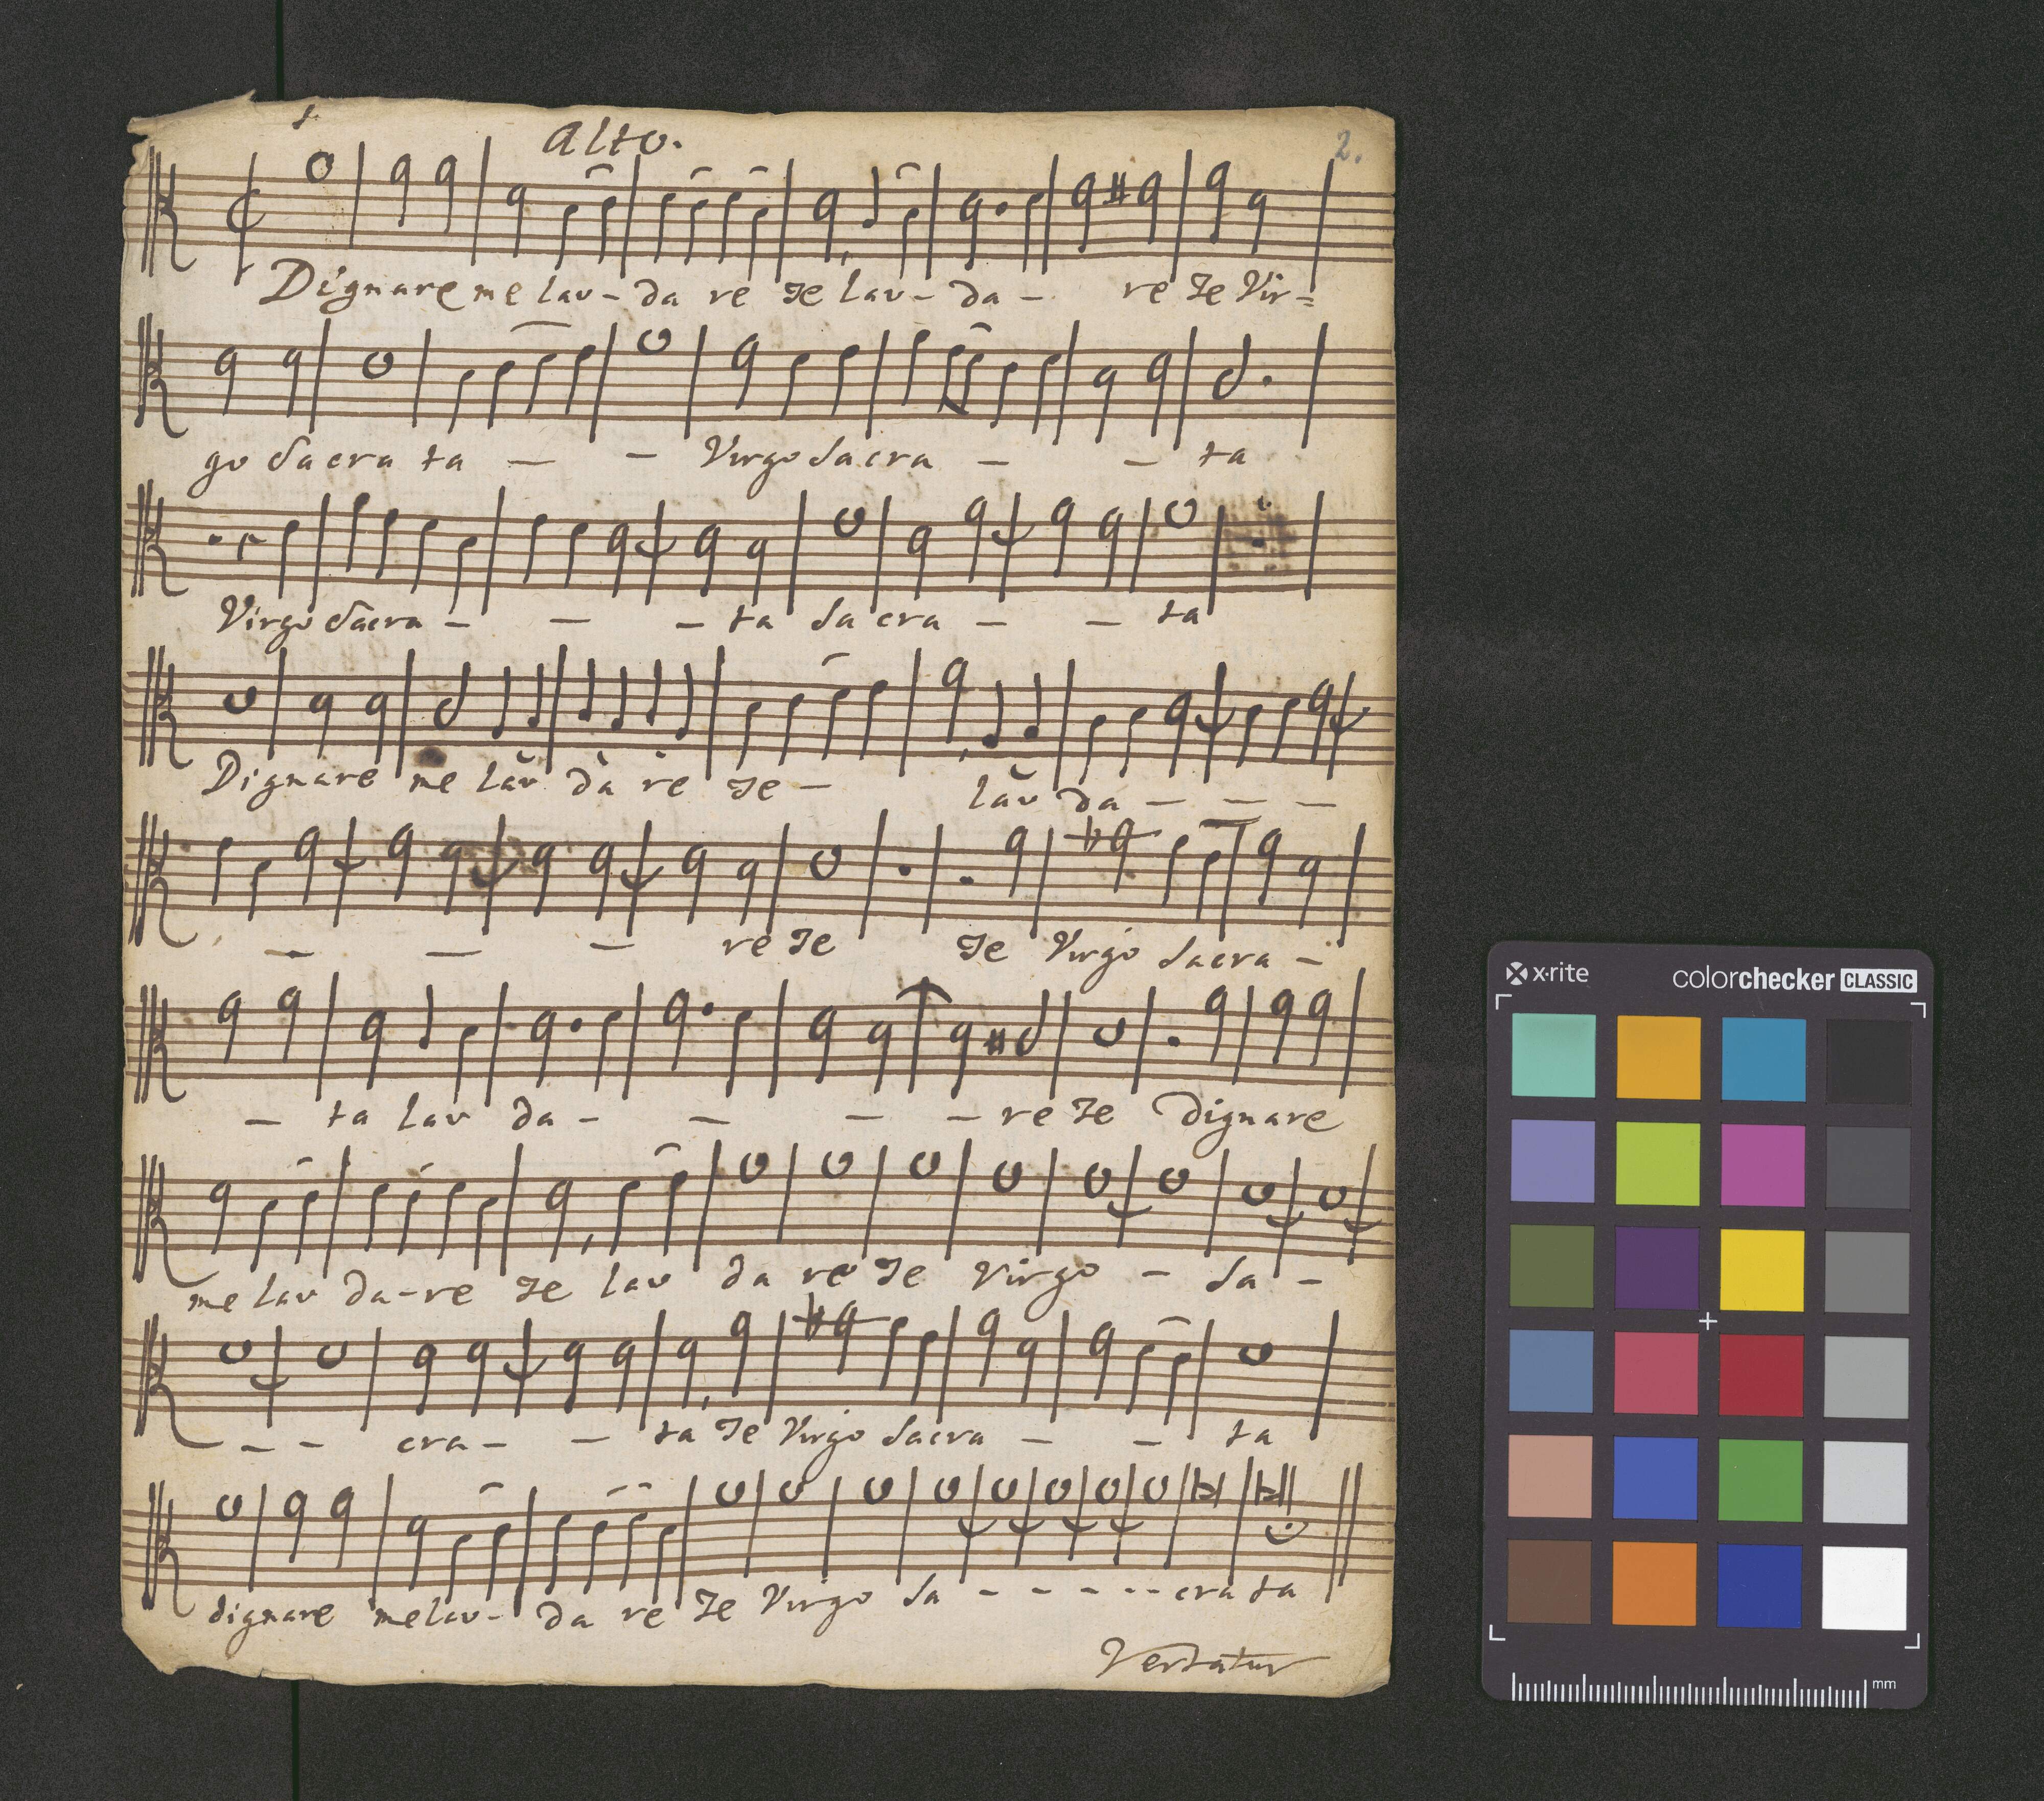 Alto.
2.
Dignare me lau - da re Te lau - da - re Te Vir =
go Sacra ta - - Virgo Sacra - - ta
Virgo Sacra - - - ta Sa cra - - ta
Dignare me lau da re Te - lau da - - -
- - - re Te Te Virgo Sacra -
- ta lau da - - - - re Te Dignare
me lau da - re Te lau da re Te Virgo - Sa -
- - - cra - - ta Te Virgo Sacra - - ta
dignare me lau - da re Te Virgo Sa - - - - - cra ta
Vertatur
x·rite
colorchecker CLASSIC
mm